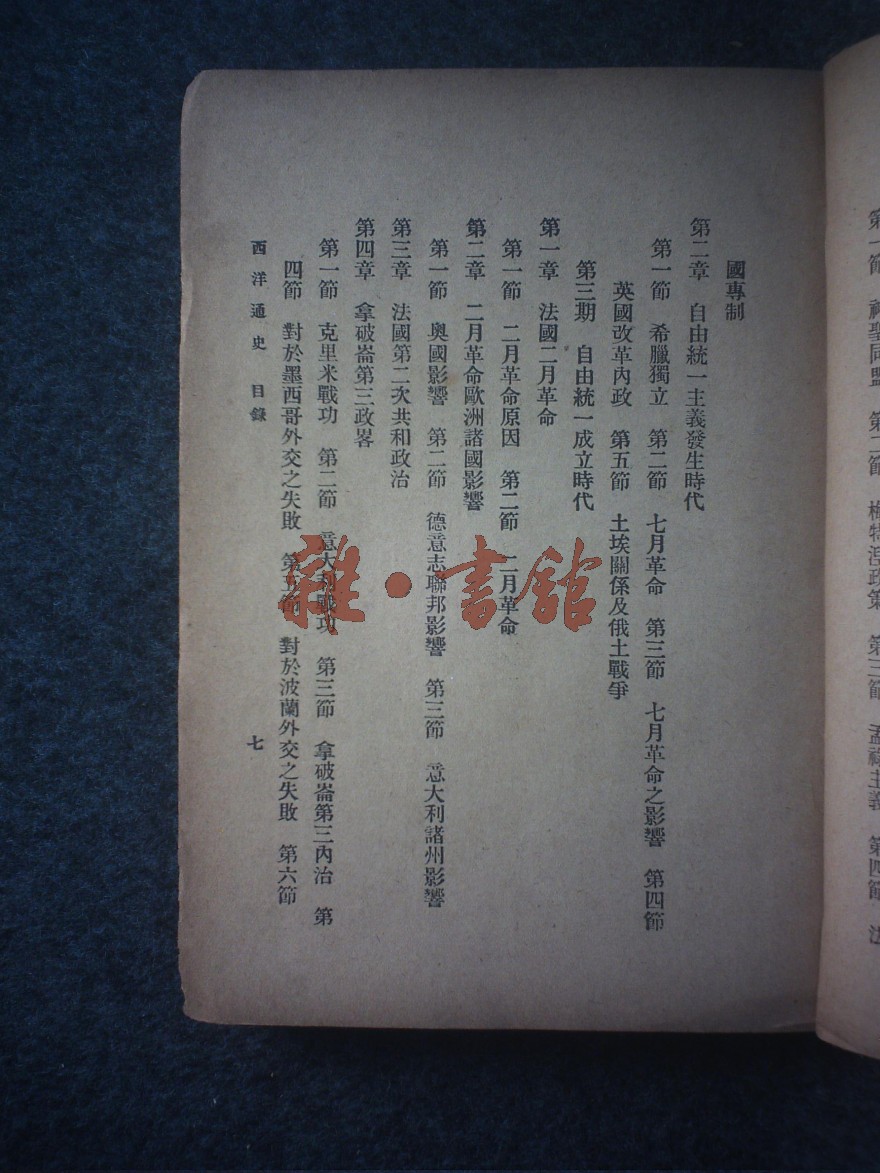 第一節　神聖同盟　第二節　梅特涅政策　第三節　孟祿主義　第四節　法
國專制
第二章　自由統一主義發生時代
第一節　希臘獨立　第二節　七月革命　第三節　七月革命之影響　第四節
英國改革內政　第五節　土埃關係及俄土戰爭
第三期　自由統一成立時代
第一章　法國二月革命
第一節　二月革命原因　第二節　二月革命
第二章　二月革命歐洲諸國影響
第一節　奧國影響　第二節　德意志聯邦影響　第三節　意大利諸州影響
第三章　法國第二次共和政治
第四章　拿破崙第三政畧
第一節　克里米戰功　第二節　意大利戰功　第三節　拿破崙第三內治　第
四節　對於墨西哥外交之失敗　第五節　對於波蘭外交之失敗　第六節
西洋通史　目錄　七
雜·書館